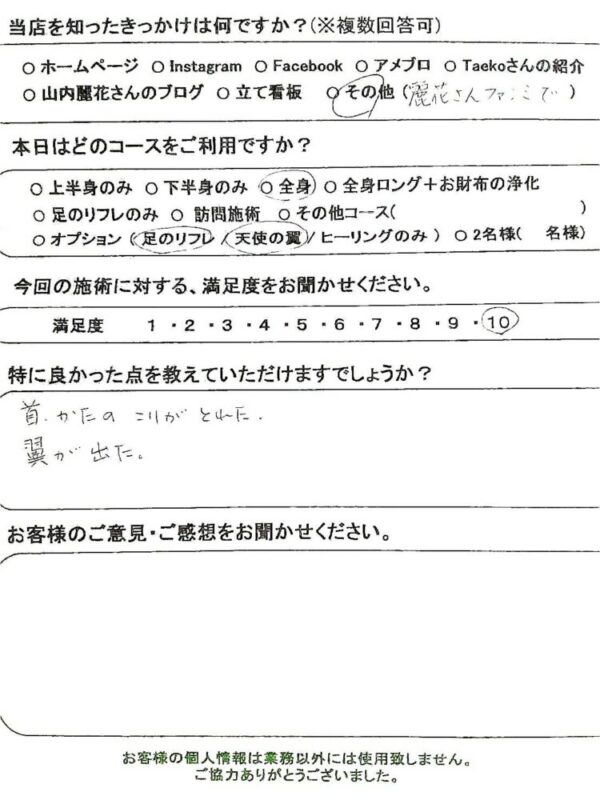 当店を知ったきっかけは何ですか?(※複数回答可)
○ ホームページ ○ Instagram ○ Facebook ○ アメブロ ○ Taekoさんの紹介
○ 山内麗花さんのブログ ○ 立て看板 ○ その他 (麗花さんファミで)
本日はどのコースをご利用ですか?
○ 上半身のみ ○ 下半身のみ ○ 全身 ○ 全身ロング+お財布の浄化
○ 足のリフレのみ ○ 訪問施術 ○ その他コース( )
○ オプション (足のリフレ / 天使の翼 / ヒーリングのみ ) ○ 2名様( 名様)
今回の施術に対する、満足度をお聞かせください。
満足度 1 ・ 2 ・ 3 ・ 4 ・ 5 ・ 6 ・ 7 ・ 8 ・ 9 ・ 10
特に良かった点を教えていただけますでしょうか?
首・かたの こりが とれた.
翼が 出た。
お客様のご意見・ご感想をお聞かせください。
お客様の個人情報は業務以外には使用致しません。
ご協力ありがとうございました。